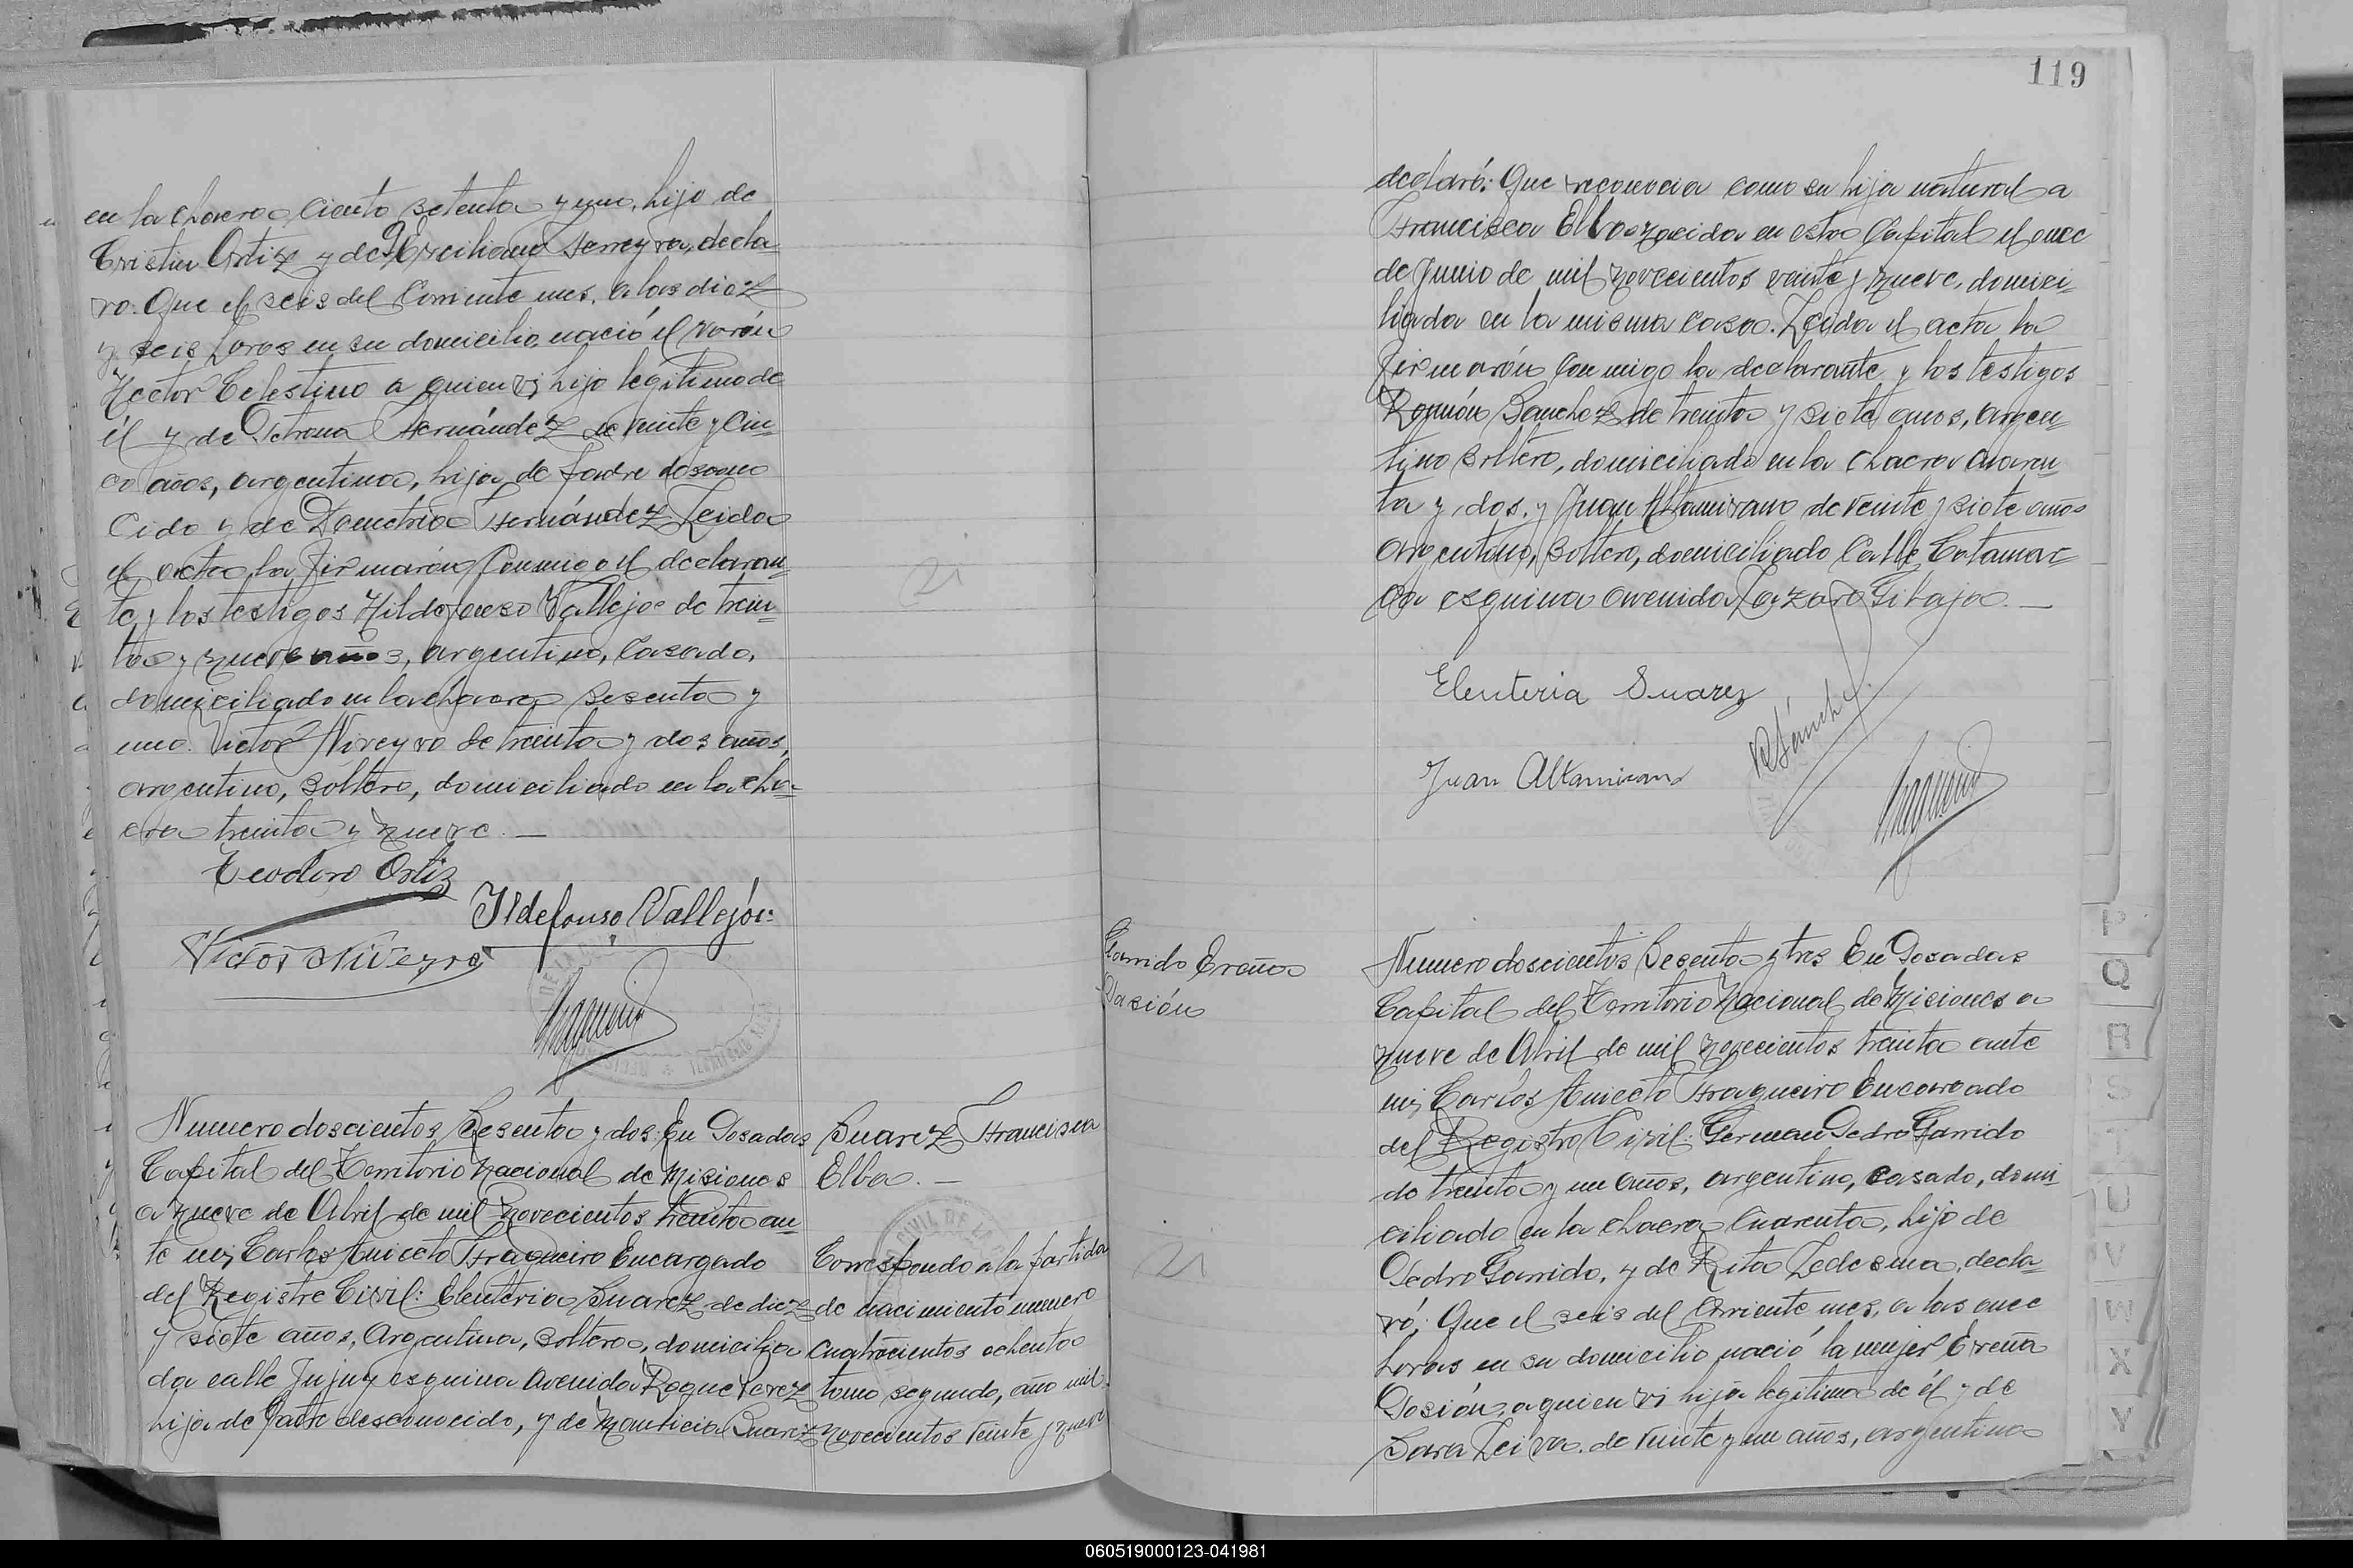 en la chacra ciento setenta y uno, hijo de
Cristin Ortiz y de Ferreyra, decla-
ro: Que el seis del corriente mes, a las diez
y seis horas en su domicilio, nació el varón
Hector Celestino a quien vi, hijo legitimo de
él y de Petrona Hernández de veinte y cin-
co años, argentina, hija de padre descono
cido y de Demetria Hernández Leida
el acta la firmarón conmigo el declaran-
te y los testigos Hildefonso Vallejos de trein-
ta y nueve años, argentino, casado,
domiciliado en la chacra sesenta y
uno. Victor Niveyro de treinta y dos años,
argentino, soltero, domiciliado en la cha-
cra treinta y nueve.—
Teodoro Ortiz
Ildefonso Vallejos
Victor Niveyro
Numero doscientos sesenta y dos: En Posadas
Capital del Territorio Nacional de Misiones
a nueve de Abril de mil novecientos treinta an-
te mi, Carlos Aniceto Fraqueiro Encargado
del Registro Civil: Eleuteria Suarez de diez
y siete años, Argentina, soltera, domicilia
da calle Jujuy esquina Avenida Roque Perez
hija de padre desconocido, y de Suarez
Suarez Francisca
Elba.—
Corresponde a la partida
de nacimiento numero
cuatrocientos ochenta
tomo segundo, año mil
novecientos veinte y nueve
119
declaró: Que reconocia como su hija natural a
Francisca Elba nacida en esta Capital el once
de Junio de mil novecientos veinte y nueve, domici-
liada en la misma casa. Leida el acta la
firmarón conmigo la declarante y los testigos
Ramón Sanchez de treinta y siete años, argen-
tino soltero, domiciliado en la chacra cuaren-
ta y dos, y Juan Altamirano de veinte y siete años
argentino, soltero, domiciliado calle Catamar-
ca esquina avenida Lazaro Gibaja.—
Eleuteria Suarez
R Sánchez
Juan Altamirano
Garrido Ereña
Pasión
Numero doscientos sesenta y tres En Posadas
Capital del Territorio Nacional de Misiones a
nueve de Abril de mil novecientos treinta ante
mi, Carlos Aniceto Fraqueiro Encargado
del Registro Civil: German Pedro Garrido
de treinta y un años, argentino, casado, domi-
ciliado en la chacra cuarenta, hijo de
Pedro Garrido, y de Rita Ledesma, decla-
ró: Que el seis del corriente mes, a las once
horas en su domicilio nació la mujer Ereña
Pasión, a quien vi hija legitima de él y de
Sara Leiva de veinte y un años, argentina
P
Q
R
S
T
U
V
W
X
Y
060519000123-041981